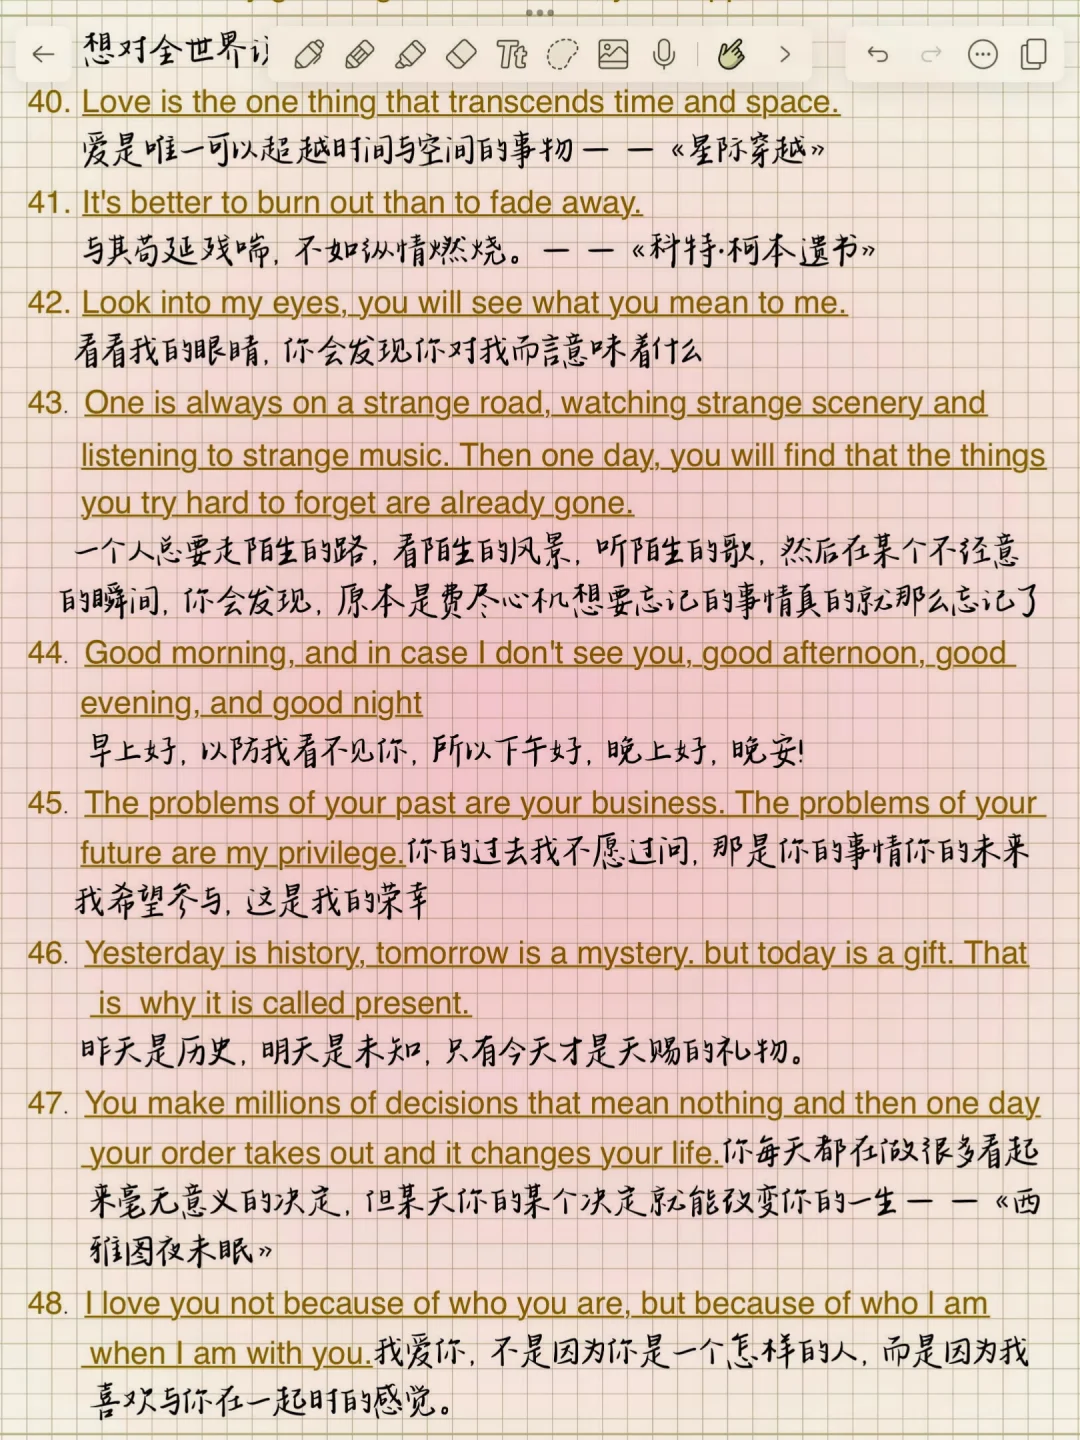 想对全世界说
Tt
40. Love is the one thing that transcends time and space.
爱是唯一可以超越时间与空间的事物——《星际穿越》
41. It's better to burn out than to fade away.
与其苟延残喘, 不如纵情燃烧。——《科特·柯本遗书》
42. Look into my eyes, you will see what you mean to me.
看看我的眼睛, 你会发现你对我而言意味着什么
43. One is always on a strange road, watching strange scenery and
listening to strange music. Then one day, you will find that the things
you try hard to forget are already gone.
一个人总要走陌生的路, 看陌生的风景, 听陌生的歌, 然后在某个不经意
的瞬间, 你会发现, 原本是费尽心机想要忘记的事情真的就那么忘记了
44. Good morning, and in case I don't see you, good afternoon, good
evening, and good night
早上好, 以防我看不见你, 所以下午好, 晚上好, 晚安!
45. The problems of your past are your business. The problems of your
future are my privilege.你的过去我不愿过问, 那是你的事情你的未来
我希望参与, 这是我的荣幸
46. Yesterday is history, tomorrow is a mystery. but today is a gift. That
is why it is called present.
昨天是历史, 明天是未知, 只有今天才是天赐的礼物。
47. You make millions of decisions that mean nothing and then one day
your order takes out and it changes your life.你每天都在做很多看起
来毫无意义的决定, 但某天你的某个决定就能改变你的一生——《西
雅图夜未眠》
48. I love you not because of who you are, but because of who I am
when I am with you.我爱你, 不是因为你是一个怎样的人, 而是因为我
喜欢与你在一起时的感觉。